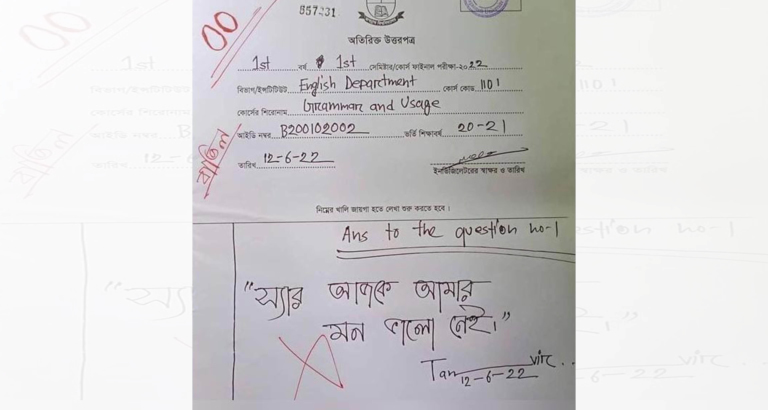 857231
00
অতিরিক্ত উত্তরপত্র
1st বর্ষ 1st সেমিস্টার/কোর্স ফাইনাল পরীক্ষা-২০22
বিভাগ/ইন্সটিটিউট English Department কোর্স কোড 1101
কোর্সের শিরোনাম Grammar and Usage
বাতিল
আইডি নম্বর B200102002 ভর্তি শিক্ষাবর্ষ 20-21
তারিখ 12-6-22
ইনভিজিলেটরের স্বাক্ষর ও তারিখ
নিম্নের খালি জায়গা হতে লেখা শুরু করতে হবে।
Ans to the question no-1
"স্যার আজকে আমার
মন ভালো নেই।"
Tan vir
12-6-22